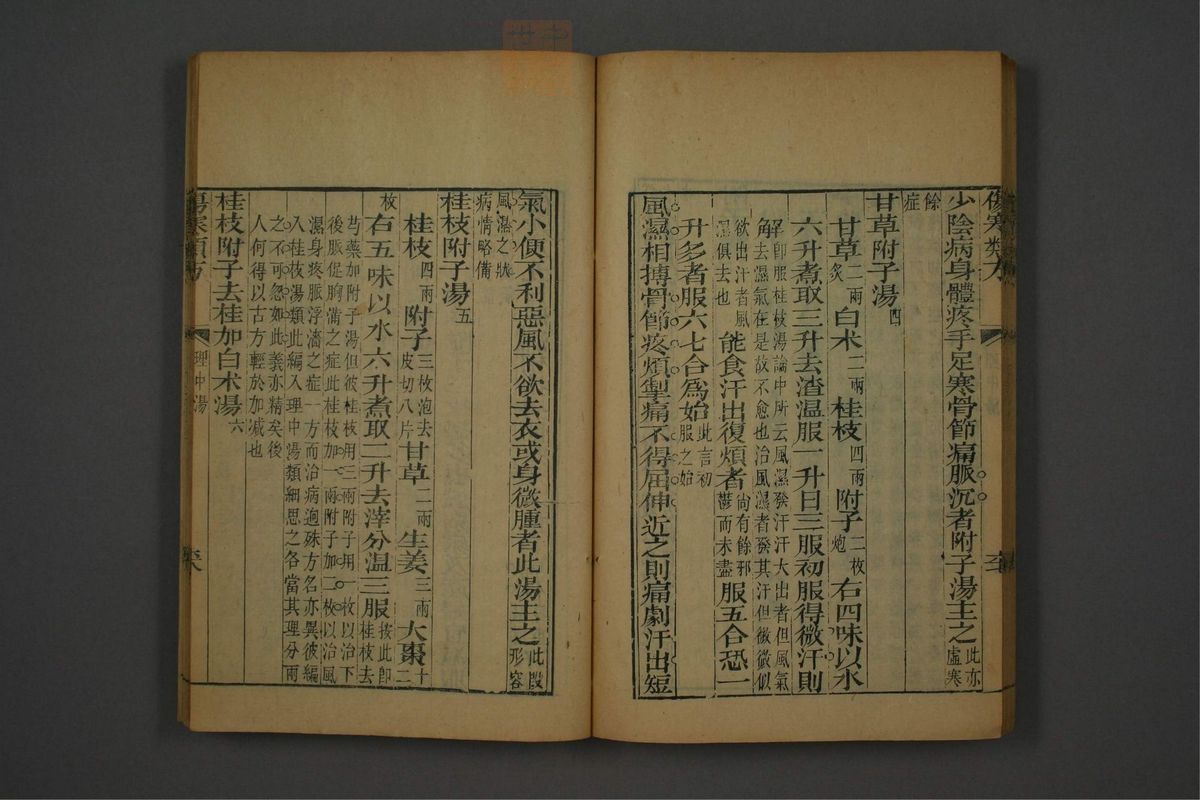 傷寒類方
少陰病身體疼手足寒骨節痛脈沉者附子湯主之此亦虛寒
餘症
甘草附子湯四
甘草炙二兩白术二兩桂枝四兩附子二枚炮右四味以水
六升煮取三升去渣温服一升日三服初服得微汗則
解卽服桂枝湯論中所云風濕發汗汗大出者但風氣去濕氣在是故不愈也治風濕者發其汗但微微似
欲出汗者風濕俱去也能食汗出復煩者尙有餘邪鬱而未盡服五合恐一
升多者服六七合爲始此言初服之始
風濕相搏骨節疼煩掣痛不得屈伸近之則痛劇汗出短
氣小便不利惡風不欲去衣或身微腫者此湯主之此段形容
風濕之狀病情略備
桂枝附子湯五
桂枝四兩附子三枚泡去皮切八片甘草二兩生姜三兩大棗十二
枚右五味以水六升煮取二升去滓分温三服按此卽桂枝去
芍藥加附子湯但彼桂枝用三兩附子用一枚以治下後脈促胸滿之症此桂枝加一兩附子加二枚以治風
濕身疼脈浮濇之症一方而治病逈殊方名亦異彼編入桂枝湯類此編入理中湯類細思之各當其理分兩
之不可忽如此義亦精矣後人何得以古方輕於加減也
桂枝附子去桂加白术湯六
傷寒類方
理中湯
六